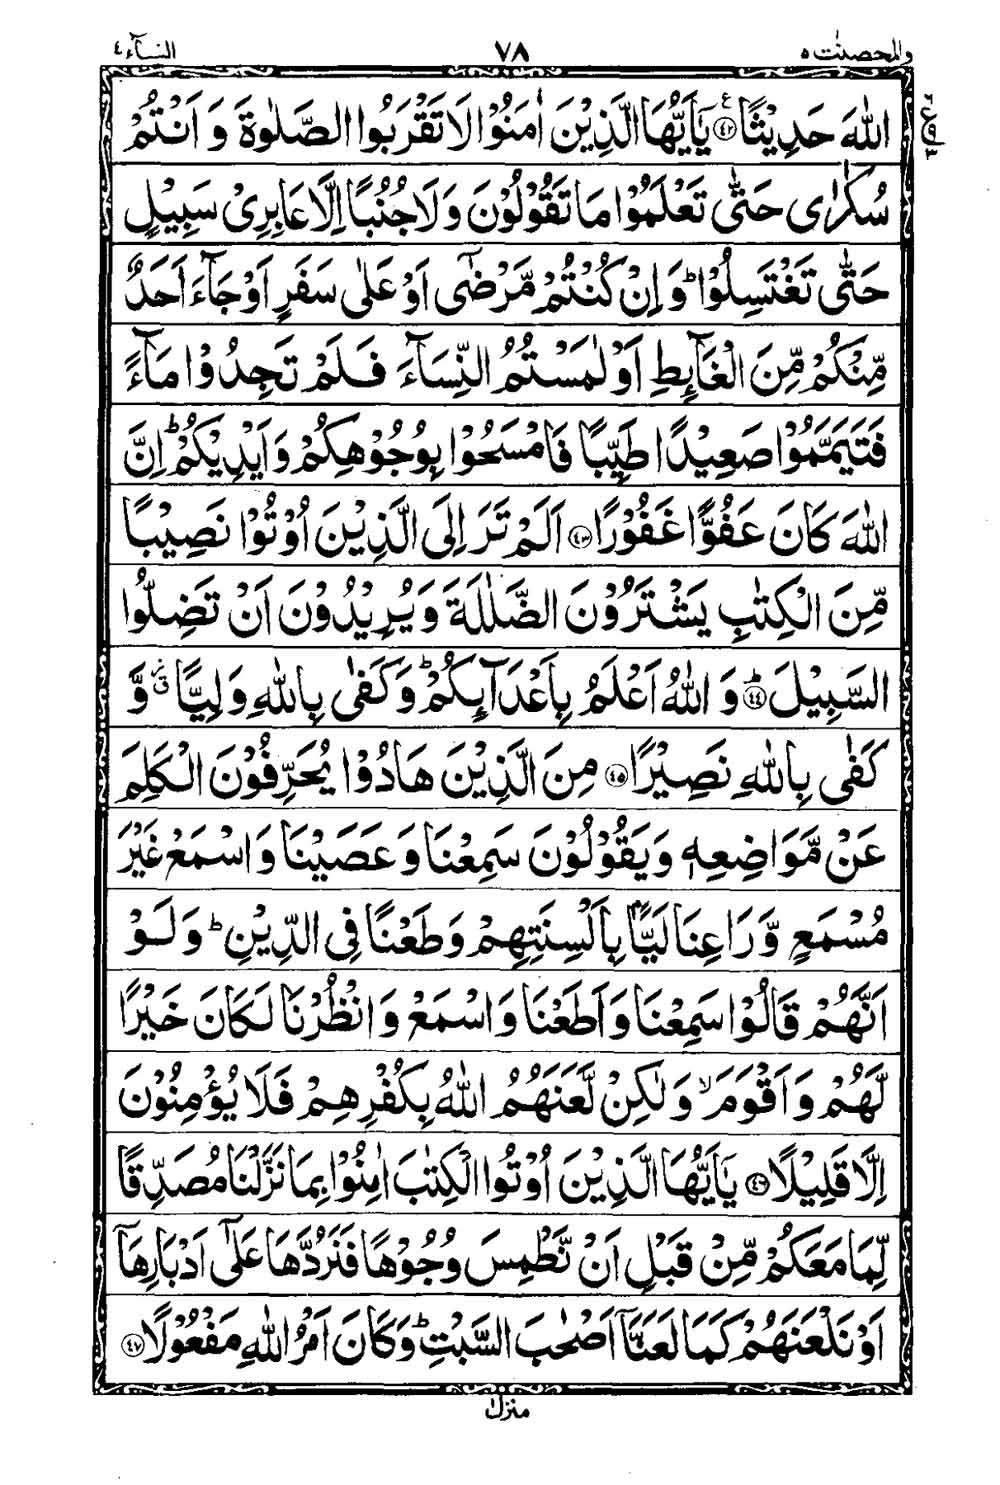 والمحصنت ٥ ٧٨ النسآء ٤
اللهَ حَدِيْثًا ﴿٤٢﴾ يٰۤاَيُّهَا الَّذِيْنَ اٰمَنُوْا لَا تَقْرَبُوا الصَّلٰوةَ وَ اَنْتُمْ
سُكَارٰى حَتّٰى تَعْلَمُوْا مَا تَقُوْلُوْنَ وَ لَا جُنُبًا اِلَّا عَابِرِىْ سَبِيْلٍ
حَتّٰى تَغْتَسِلُوْا ؕ وَ اِنْ كُنْتُمْ مَّرْضٰۤى اَوْ عَلٰى سَفَرٍ اَوْ جَآءَ اَحَدٌ
مِّنْكُمْ مِّنَ الْغَآىِٕطِ اَوْ لٰمَسْتُمُ النِّسَآءَ فَلَمْ تَجِدُوْا مَآءً
فَتَيَمَّمُوْا صَعِيْدًا طَيِّبًا فَامْسَحُوْا بِوُجُوْهِكُمْ وَ اَيْدِيْكُمْ ؕ اِنَّ
اللهَ كَانَ عَفُوًّا غَفُوْرًا ﴿٤٣﴾ اَلَمْ تَرَ اِلَى الَّذِيْنَ اُوْتُوْا نَصِيْبًا
مِّنَ الْكِتٰبِ يَشْتَرُوْنَ الضَّلٰلَةَ وَ يُرِيْدُوْنَ اَنْ تَضِلُّوا
السَّبِيْلَ ؕ﴿٤٤﴾ وَ اللهُ اَعْلَمُ بِاَعْدَآىِٕكُمْ ؕ وَ كَفٰى بِاللهِ وَلِيًّا وَّ
كَفٰى بِاللهِ نَصِيْرًا ﴿٤٥﴾ مِنَ الَّذِيْنَ هَادُوْا يُحَرِّفُوْنَ الْكَلِمَ
عَنْ مَّوَاضِعِهٖ وَ يَقُوْلُوْنَ سَمِعْنَا وَ عَصَيْنَا وَ اسْمَعْ غَيْرَ
مُسْمَعٍ وَّ رَاعِنَا لَيًّۢا بِاَلْسِنَتِهِمْ وَ طَعْنًا فِى الدِّيْنِ ؕ وَ لَوْ
اَنَّهُمْ قَالُوْا سَمِعْنَا وَ اَطَعْنَا وَ اسْمَعْ وَ انْظُرْنَا لَكَانَ خَيْرًا
لَّهُمْ وَ اَقْوَمَ ۙ وَ لٰكِنْ لَّعَنَهُمُ اللهُ بِكُفْرِهِمْ فَلَا يُؤْمِنُوْنَ
اِلَّا قَلِيْلًا ﴿٤٦﴾ يٰۤاَيُّهَا الَّذِيْنَ اُوْتُوا الْكِتٰبَ اٰمِنُوْا بِمَا نَزَّلْنَا مُصَدِّقًا
لِّمَا مَعَكُمْ مِّنْ قَبْلِ اَنْ نَّطْمِسَ وُجُوْهًا فَنَرُدَّهَا عَلٰۤى اَدْبَارِهَاۤ
اَوْ نَلْعَنَهُمْ كَمَا لَعَنَّاۤ اَصْحٰبَ السَّبْتِ ؕ وَ كَانَ اَمْرُ اللهِ مَفْعُوْلًا ﴿٤٧﴾
منزل ١